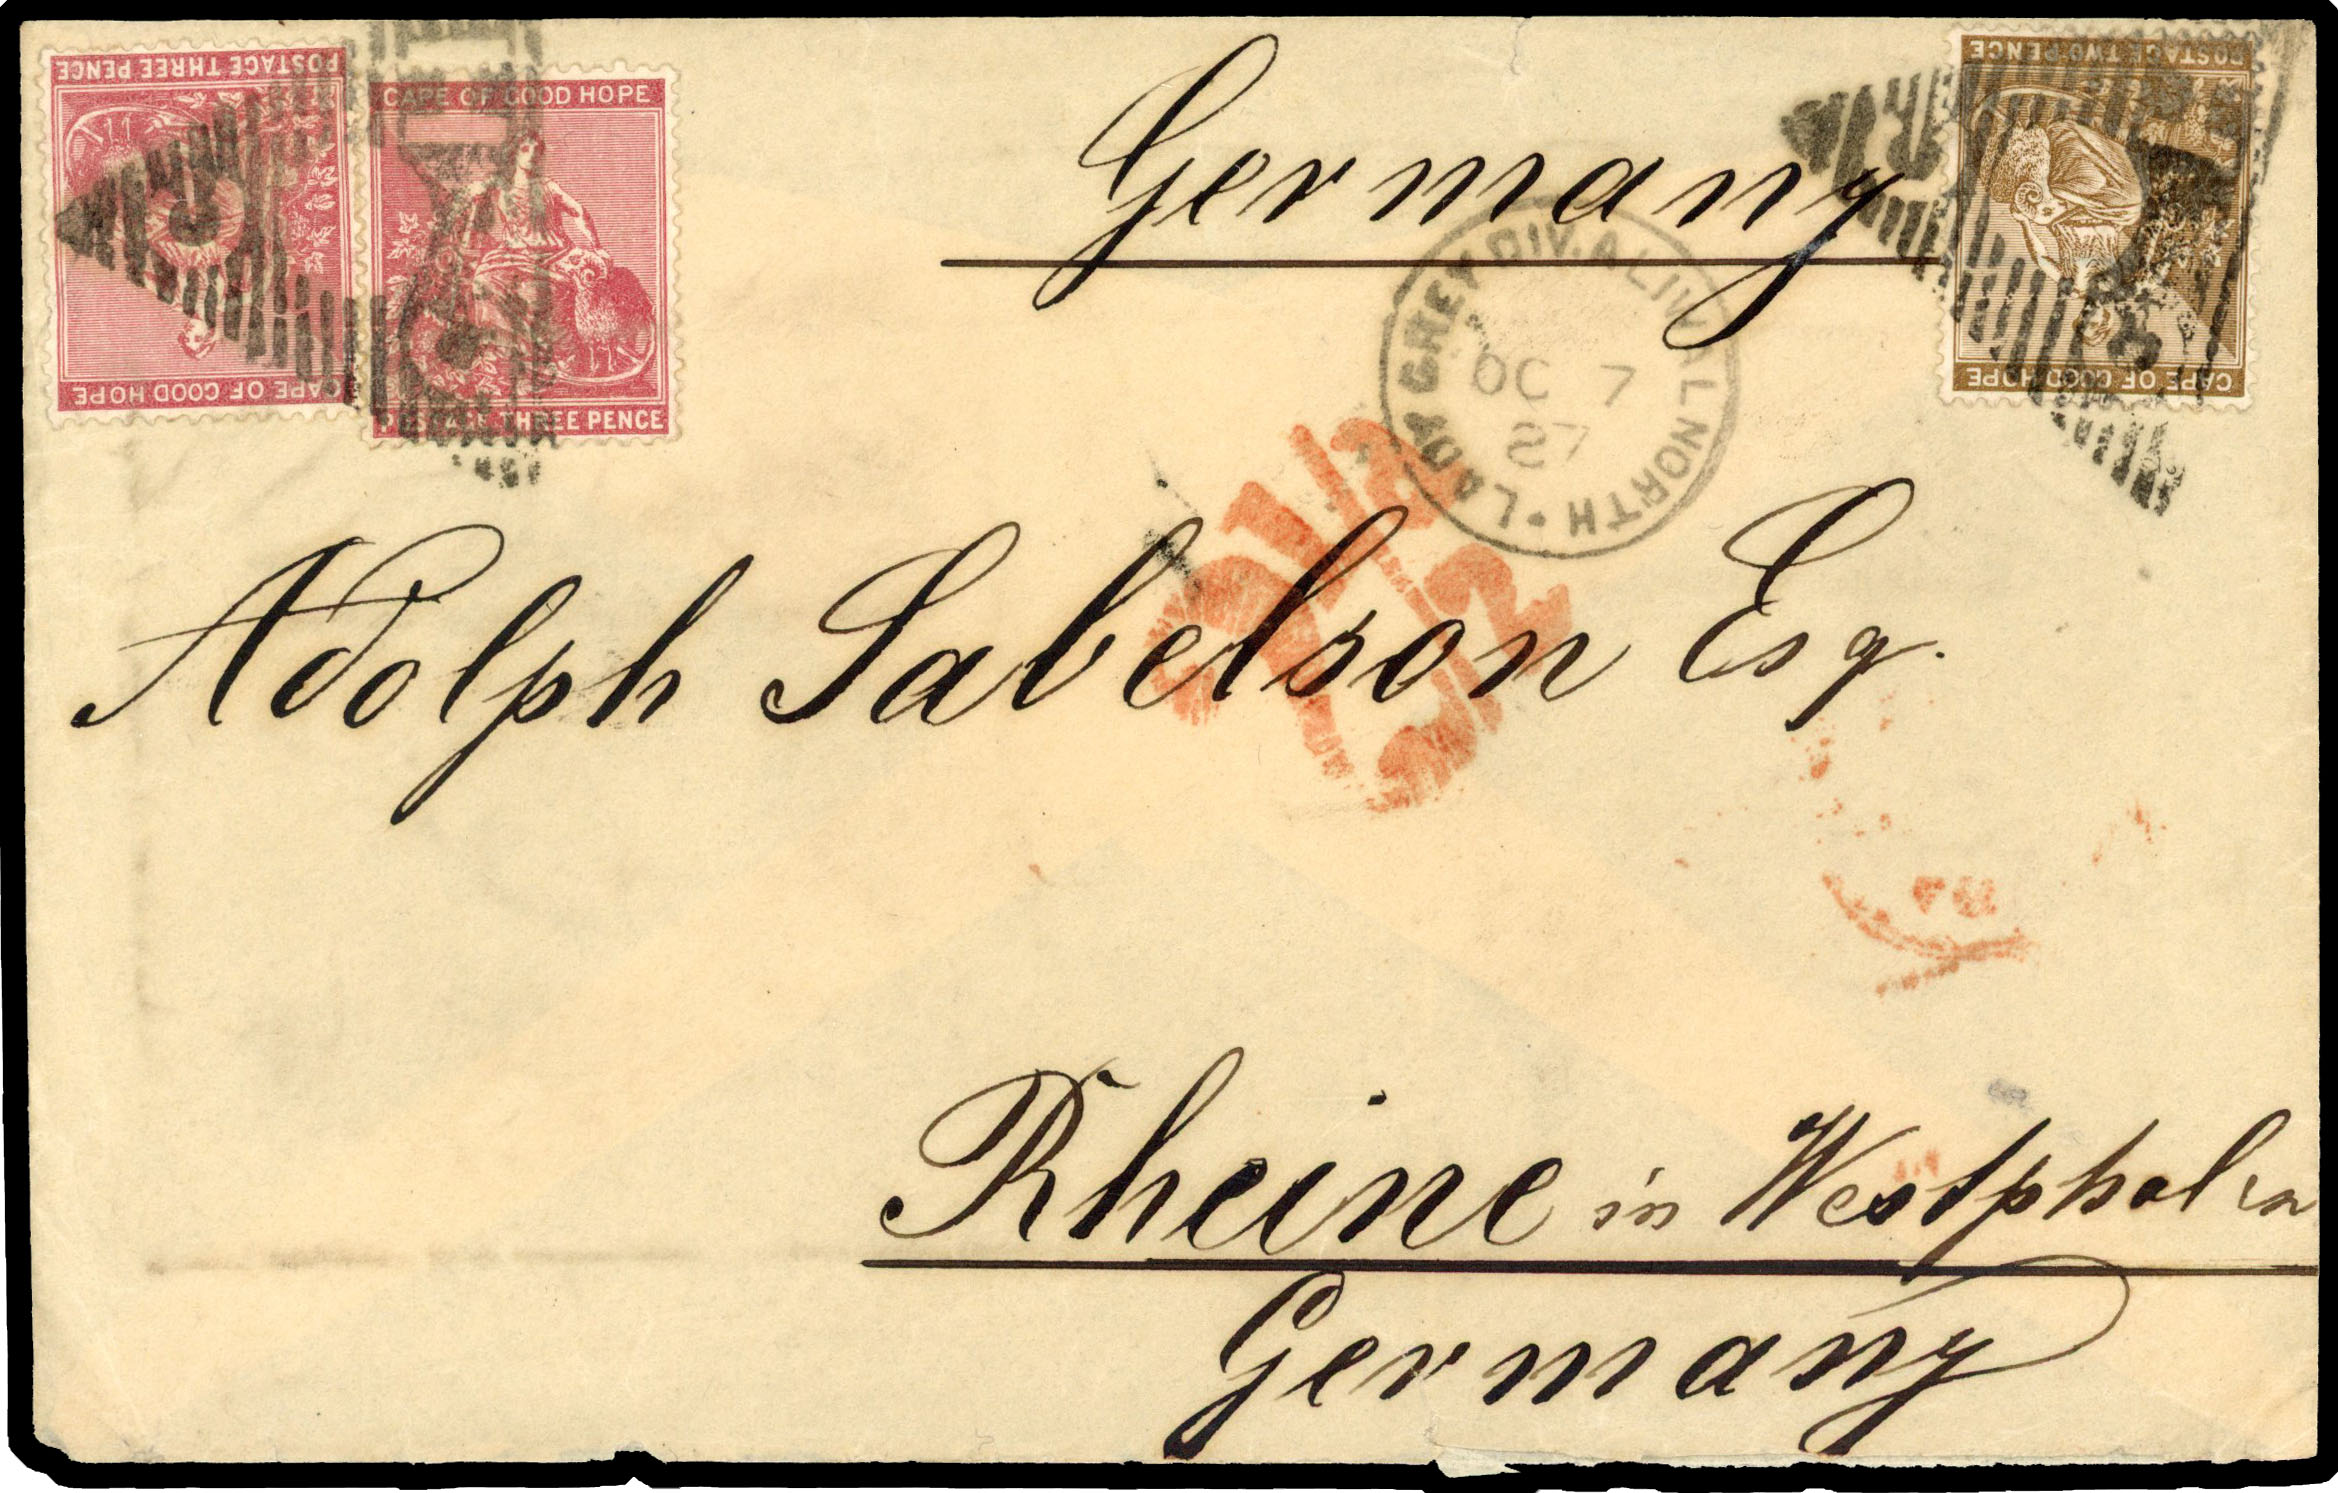 POSTAGE THREE PENCE
CAPE OF GOOD HOPE
CAPE OF GOOD HOPE
POSTAGE THREE PENCE
POSTAGE TWO PENCE
CAPE OF GOOD HOPE
Germany
LADY GREY DIV. ALIWAL NORTH
OC 7
87
2 1/2
Adolph Sabelson Esq.
Rheine in Westphalen
Germany